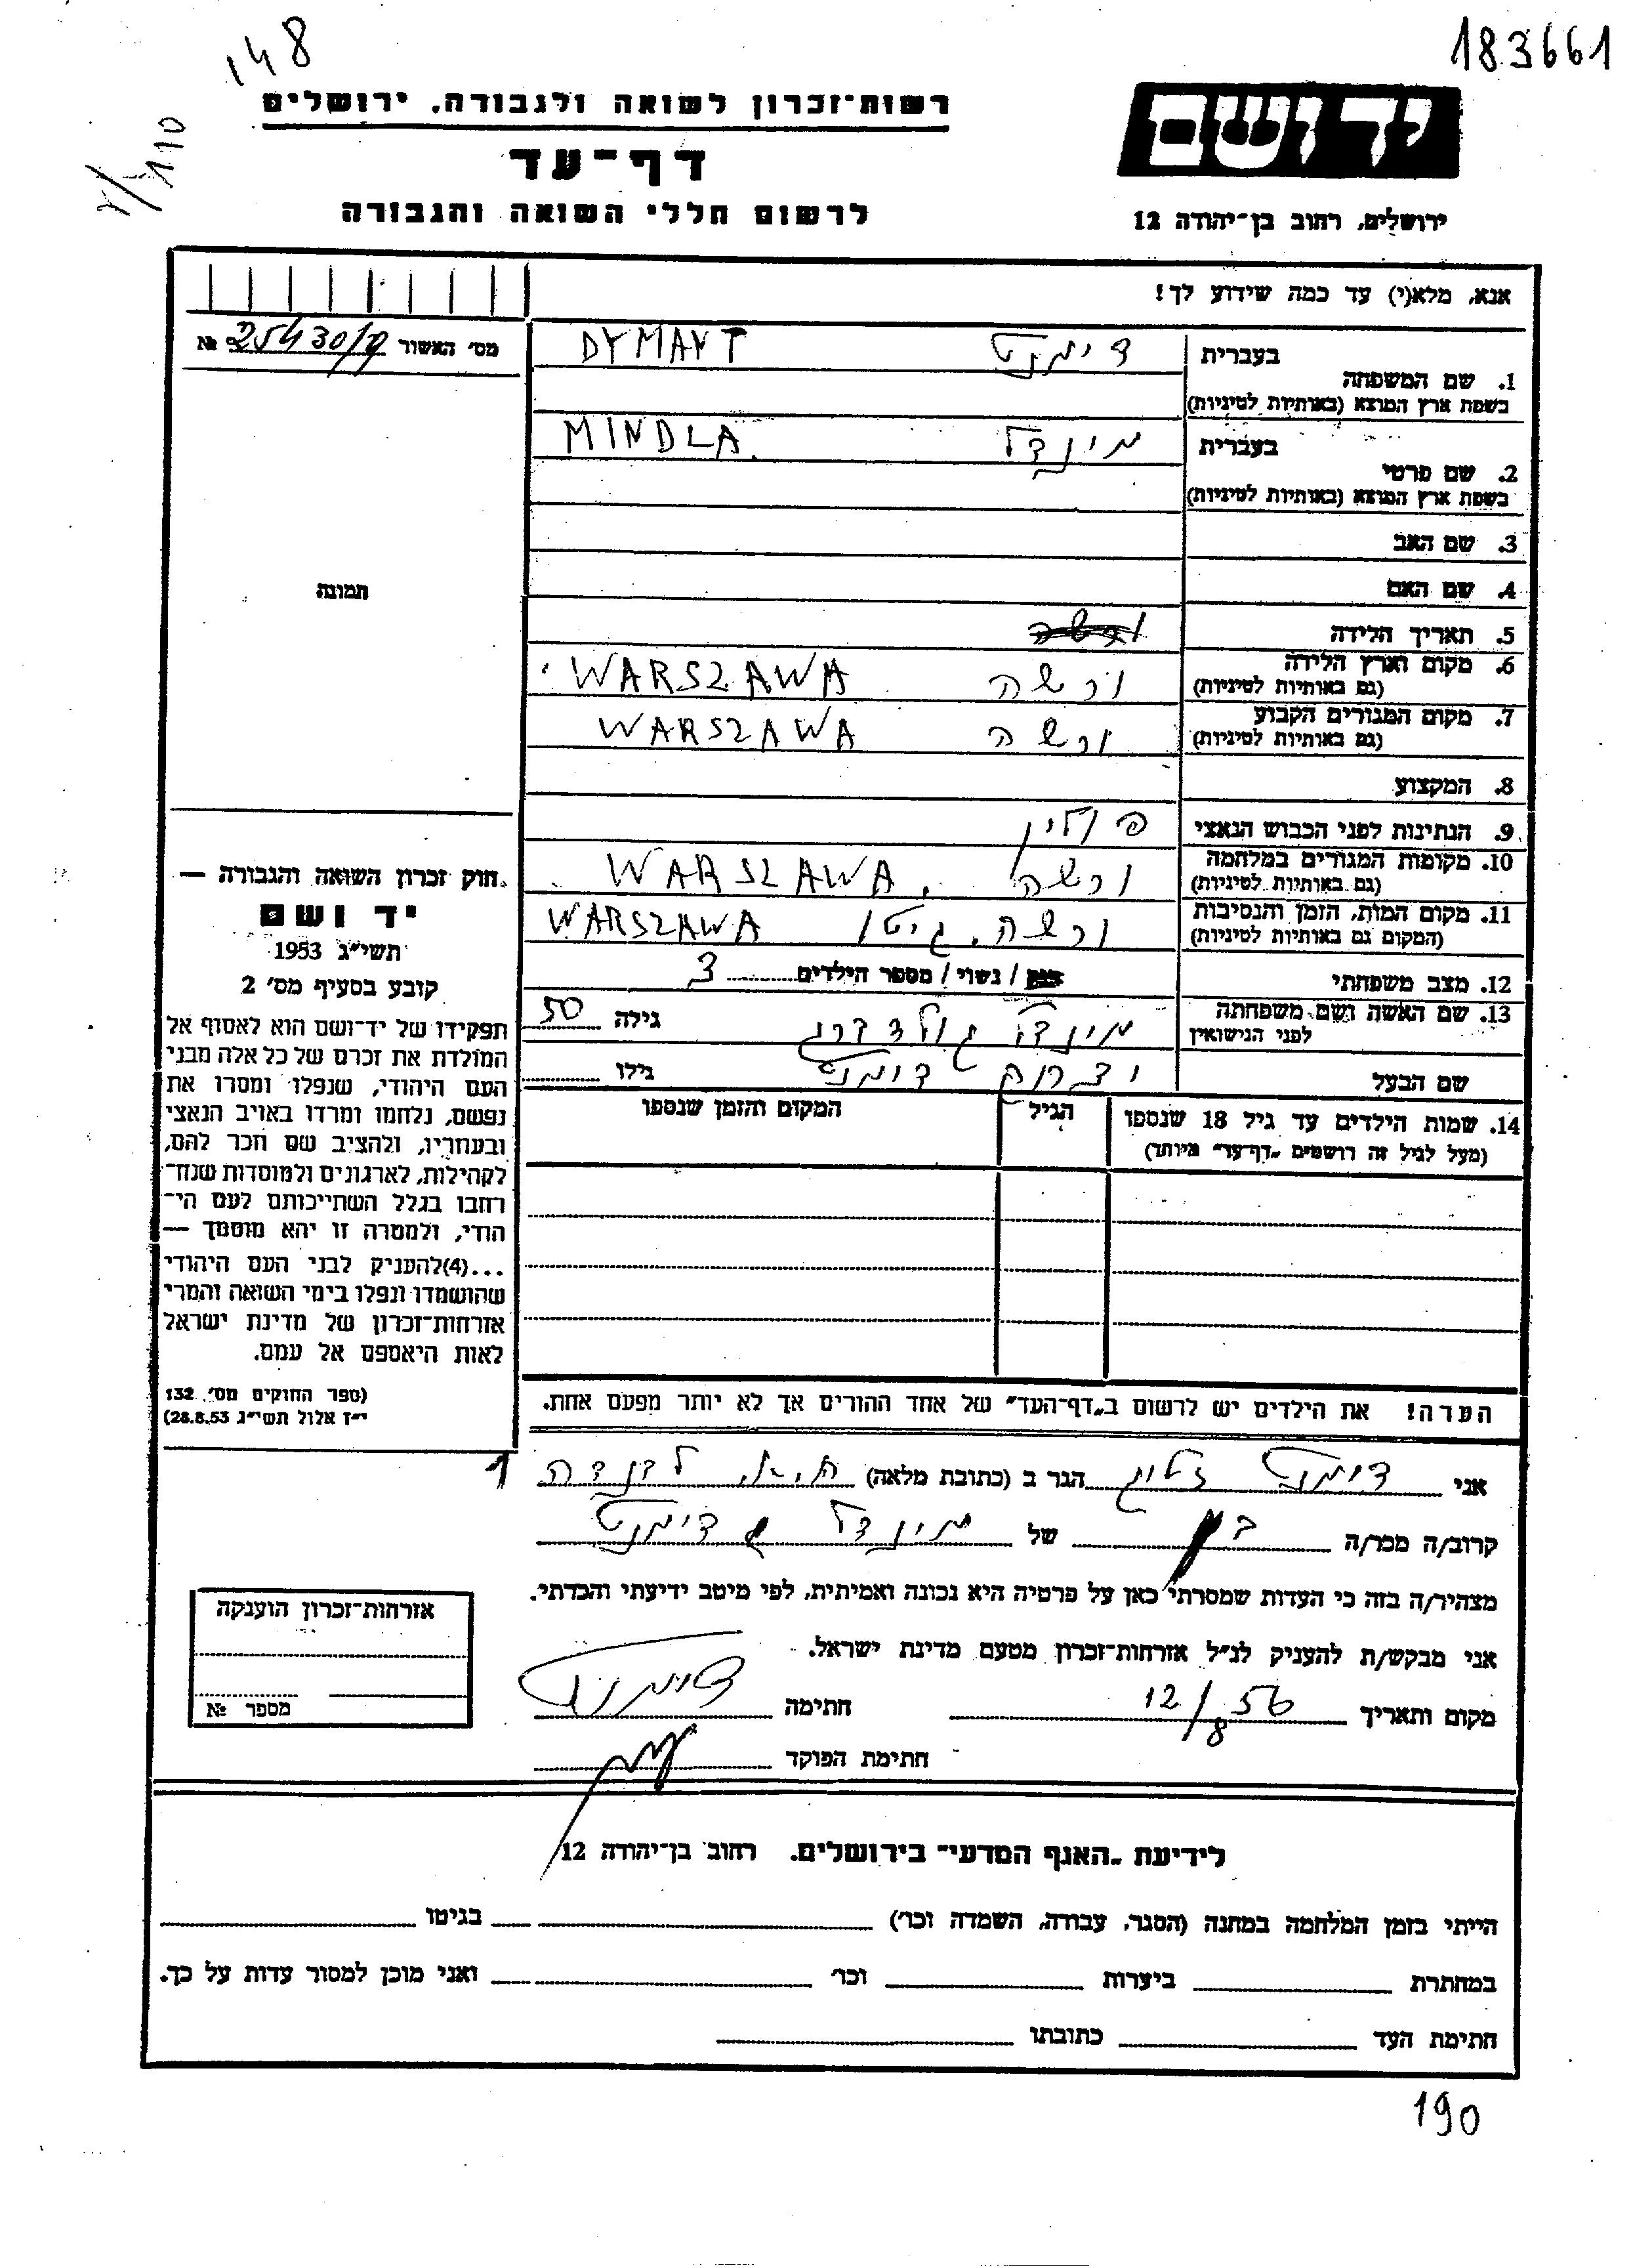 148
183661
רשות־זכרון לשואה ולגבורה, ירושלים
יד ושם
דף־עד
לרשום חללי השואה והגבורה
ירושלים, רחוב בן־יהודה 12
אנא, מלא(י) עד כמה שידוע לך!
מס׳ האשור №
1. שם המשפחה
בעברית דימנט DYMANT
בשפת ארץ המוצא (באותיות לטיניות)
2. שם פרטי
בעברית מינדל MINDLA
בשפת ארץ המוצא (באותיות לטיניות)
3. שם האב
4. שם האם
תמונה
5. תאריך הלידה ורשה
6. מקום וארץ הלידה ורשה WARSZAWA
(גם באותיות לטיניות)
7. מקום המגורים הקבוע ורשה WARSZAWA
(גם באותיות לטיניות)
8. המקצוע
9. הנתינות לפני הכבוש הנאצי פולין
10. מקומות המגורים במלחמה ורשה WARSZAWA
(גם באותיות לטיניות)
11. מקום המות, הזמן והנסיבות ורשה, גיטו WARSZAWA
(המקום גם באותיות לטיניות)
12. מצב משפחתי רוק / נשוי / מספר הילדים 3
13. שם האשה ושם משפחתה מינדל גולדברג גילה 50
לפני הנישואין
שם הבעל דימנט גילו
14. שמות הילדים עד גיל 18 שנספו הגיל המקום והזמן שנספו
(מעל לגיל זה רושמים „דף־עד״ מיוחד)
חוק זכרון השואה והגבורה —
יד ושם
תשי״ג 1953
קובע בסעיף מס׳ 2
תפקידו של יד־ושם הוא לאסוף אל
המולדת את זכרם של כל אלה מבני
העם היהודי, שנפלו ומסרו את
נפשם, נלחמו ומרדו באויב הנאצי
ובעוזריו, ולהציב שם וזכר להם,
לקהילות, לארגונים ולמוסדות שנח־
רחבו בגלל השתייכותם לעם הי־
הודי, ולמטרה זו יהא מוסמך —
...(4)להעניק לבני העם היהודי
שהושמדו ונפלו בימי השואה והמרי
אזרחות־זכרון של מדינת ישראל
לאות היאספם אל עמם.
(ספר החוקים מס׳ 132
י״ז אלול תשי״ג 28.8.53)
הערה! את הילדים יש לרשום ב„דף־העד״ של אחד ההורים אך לא יותר מפעם אחת.
אני דימנט זליג הגר ב (כתובת מלאה)
קרוב/ה מכר/ה בן של מינדל דימנט
מצהיר/ה בזה כי העדות שמסרתי כאן על פרטיה היא נכונה ואמיתית, לפי מיטב ידיעתי והכרתי.
אני מבקש/ת להעניק לנ״ל אזרחות־זכרון מטעם מדינת ישראל.
מקום ותאריך 12/8 56 חתימה דימנט
חתימת הפוקד
אזרחות־זכרון הוענקה
מספר №
לידיעת „האגף המדעי״ בירושלים, רחוב בן־יהודה 12
הייתי בזמן המלחמה במחנה (הסגר, עבודה, השמדה וכו׳) בגיטו
במחתרת ביערות וכו׳ ואני מוכן למסור עדות על כך.
חתימת העד כתובתו
190